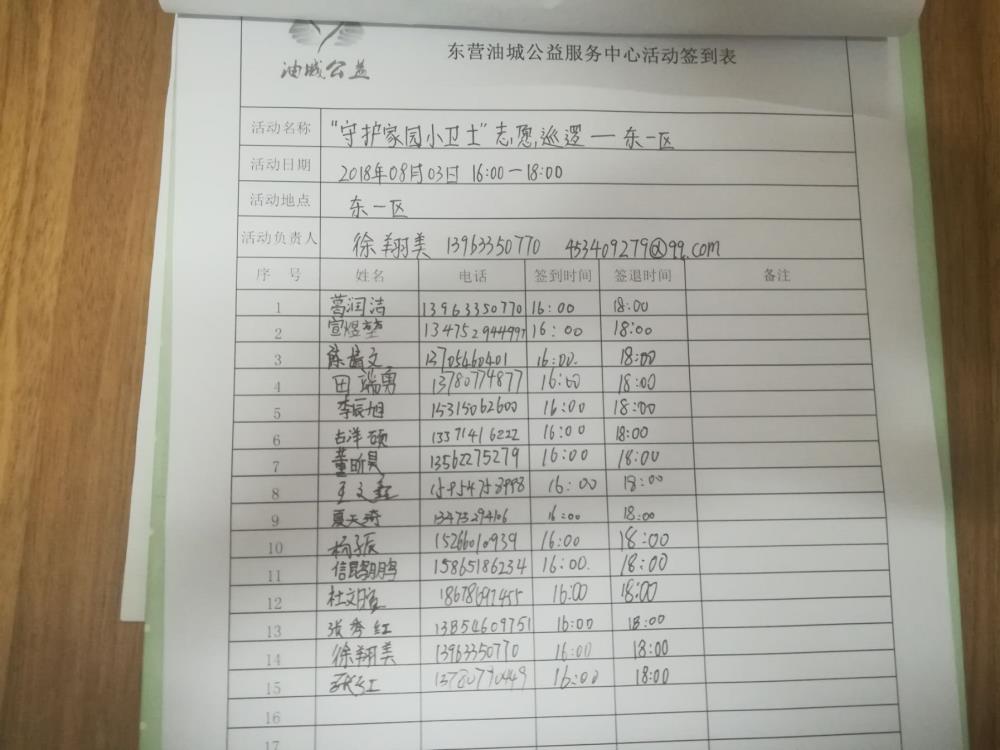 油城公益
东营油城公益服务中心活动签到表
活动名称 “守护家园小卫士”志愿巡逻一东一区
活动日期 2018年08月03日 16:00-18:00
活动地点 东一区
活动负责人 徐翔美 13963350770 453409279@qq.com
序号 姓名 电话 签到时间 签退时间 备注
1 葛润洁 13963350770 16:00 18:00
2 宣煜堃 134752944997 16:00 18:00
3 陈 文 13705460401 16:00. 18:00
4 田瑞勇 13780774877 16:00 18:00
5 李辰旭 15315062600 16:00 18:00
6 占洋硕 13371416222 16:00 18:00
7 董昕昊 13562275279 16:00 18:00
8 王文 16:00 18:00
9 夏天琦 13475294106 16:00 18:00
10 杨子辰 15266010939 16:00 18:00
11 信 鹏 15865186234 16:00. 18:00
12 杜文 18678697455 16:00 18:00
13 张秀红 13854609751 16:00 18:00
14 徐翔美 13963350770 16:00 18:00
15 红 13780770449 16:00 18:00
16
17